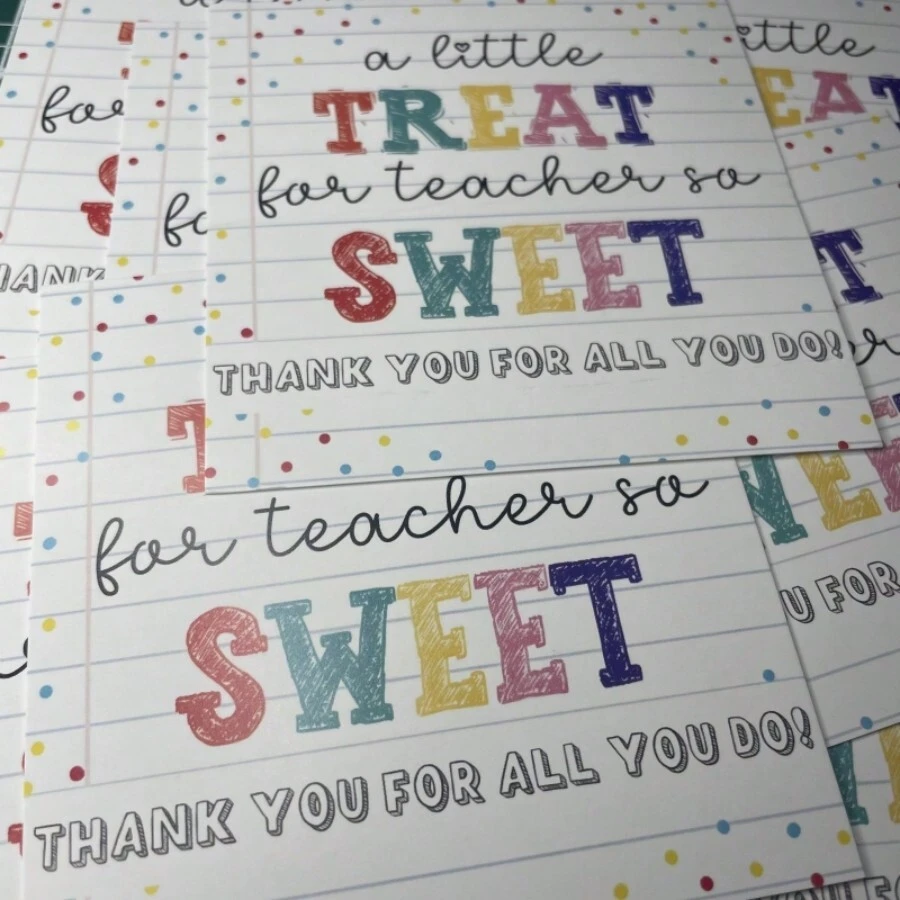 a little
TREAT
for teacher so
SWEET
THANK YOU FOR ALL YOU DO!
for teacher so
SWEET
THANK YOU FOR ALL YOU DO!
ittle
EAT
T
for
S
HANK
fo
T
WEE
U FOR